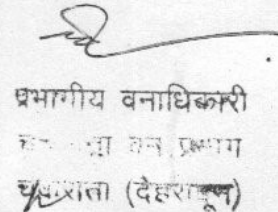 प्रभागीय वनाधिकारी
वन प्रभाग
(देहरादून)